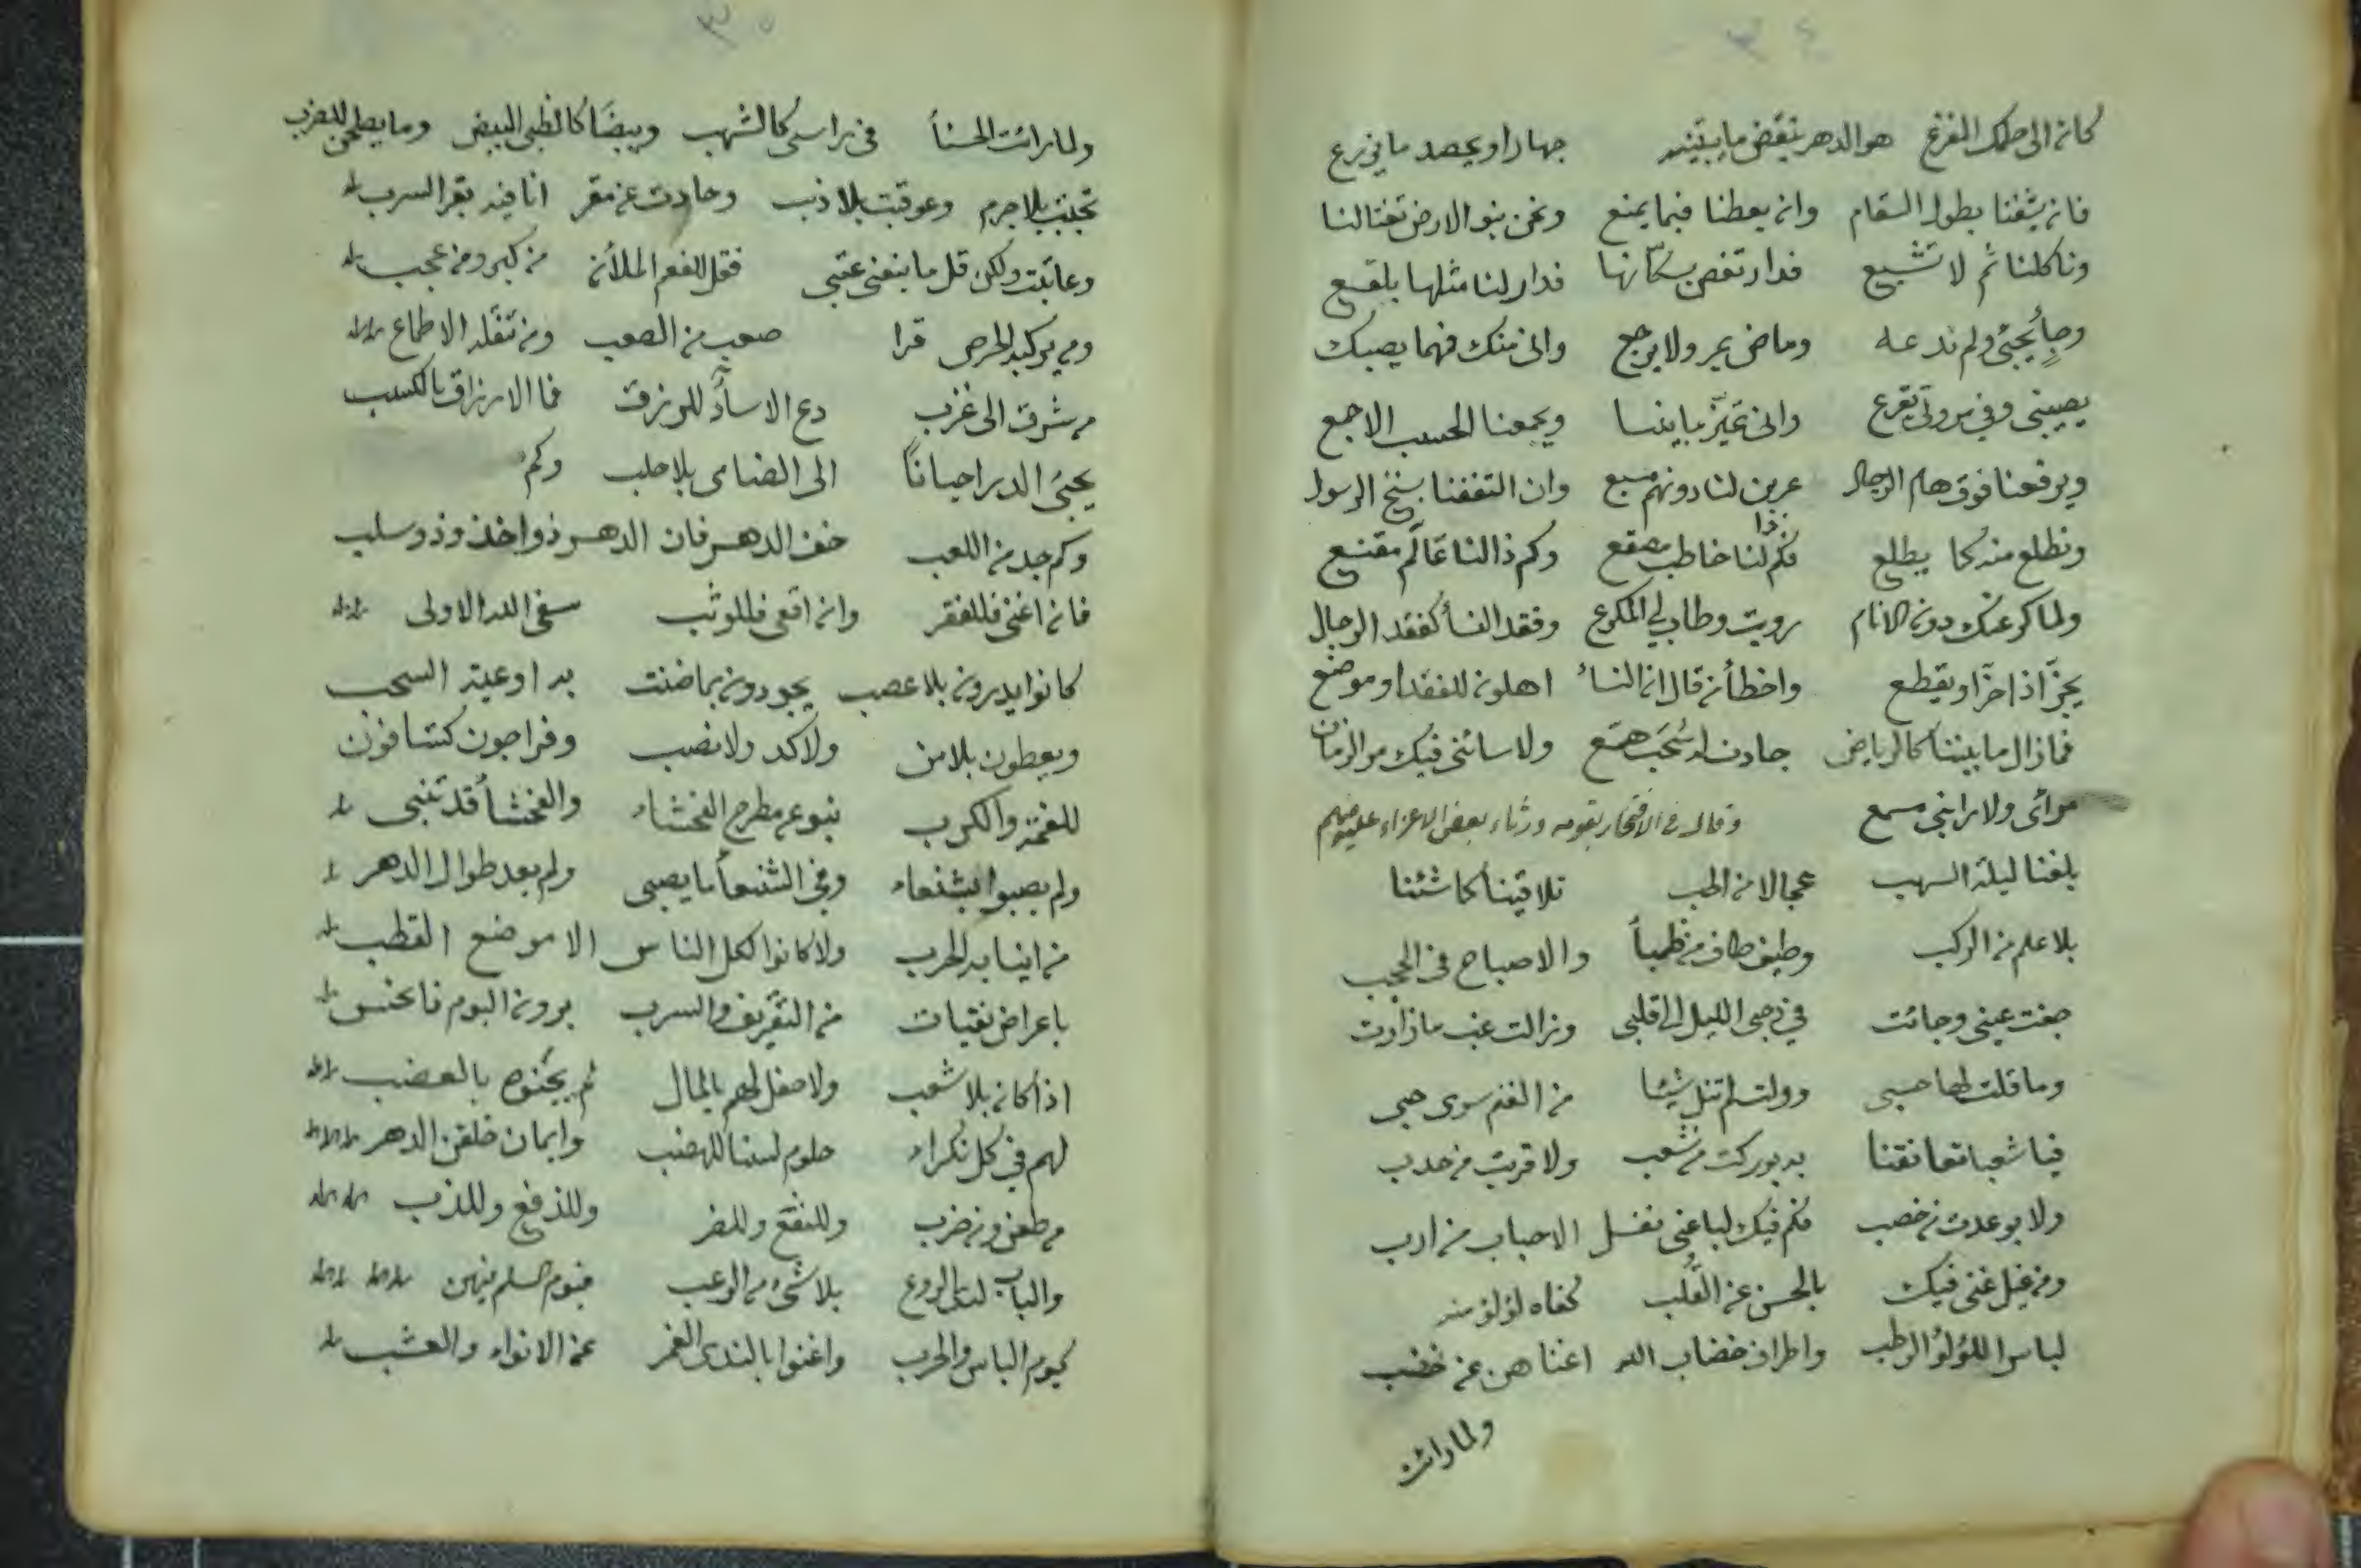 ٣٤
كان الى حكمك المفزع هو الدهر ينقض ما يبتنيه جهارا ويحصد ما يزرع
فان يشفنا بطول السقام وان يعطنا فبما يمنع ونحن بنو الارض تغتالنا
وتأكلنا ثم لا تشبع فدار تغص بسكّانها فدار لنا مثلها بلقع
وجاءٍ يجئ ولم ندعه وماض يمر ولا يرجع وانى منك فهما يصبك
يصيبنى وفى مروتى تقرع وانى تميّز ما بيننا ويجمعنا الحسب الاجمع
ويرفعنا فوق هام الرجال عرين لنا دونهم مسبع وان التففنا بسنخ الرسول
ونطلع منه كما يطلع فكم ذا لنا خاطب مصقع وكم ذا لنا عالم مقنع
ولما كرعتك دون الانام رويت وطاب لي المكرع وفقد النسأ كفقد الرجال
يحزّ اذا حزّ او يقطع واخطأ من قال ان النسأ اهلون للفقد او موضع
فما زال ما بيننا كالرياض جادت له سُحَب همّع ولا ساءنى فيك مر الزمان
مرائى ولا رابنى مسمع وقال فى الافتخار بقومه ورثاء بعض الاعزاء عليه منهم
بلغنا ليلة السهب عجالا من الحب تلاقينا كما شئنا
بلا علم من الركب وطيف طاف من ظمياً والاصباح فى الحجب
جفت عينى وجائت في دجى الليل الى قلبى وزالت غب ما زارت
وما قلت لها حسبى وولت لم تنل شيئا من الغنم سوى حبى
فيا شعبا تعانقنا به بوركت من شعب ولا قربت من جدب
ولا بوعدت من خصب فكم فيك لباغى نفل الاحباب من ارب
ومن غيل غنى فيك بالحسن عن القُلب كفاه لؤلؤ منه
لباس اللؤلؤ الرطب واطراف خضاب الله اغناهن عن خضب
ولما رائت
٣٥
ولما رائت الحسنأ فى راسى كالشهب وبيضا كالظبى البيض وما يصلحن للضرب
تجنبت بلا جرم وعوقبت بلا ذنب وحادت عن مقر انا فيه بقر السرب
وعاتبت ولكن قل ما ينفعنى عتبى فقل للفعم الملأن من كبر ومن عجب
ومن يركبه الحرص قرا صعب من الصعب ومن تنقله الاطماع
من شرق الى غرب دع الاسأد للرزق فما الارزاق بالكسب
يجئ الدر احيانًا الى الضامى بلا حلب وكم
وكم جد من اللعب خف الدهر فان الدهر ذو اخذ وذو سلب
فان اغنى فللفقر وان اقعى فللوثب سقى الله الاولى
كانوا يدرون بلا عصب يجودون بما ضنت به اوعية السحب
ويعطون بلا من ولا كد ولا نصب وفراجون كشافون
للغمة والكرب نبو عن مطرح الفحشاء والفحشأ قد تنبى
ولم يصبوا بشنعاء وفى الشنعأ ما يصبى ولم يعد طوال الدهر
من اينابه الحرب ولا كانوا لكل الناس الا موضع القطب
باعراض نقيات من التقريف والسرب يرون اليوم فاتحنس
اذا كان بلا شعب ولا صفل لهم بالمال ثم يجنوه بالعضب
لهم فى كل نكراء حلوم لسن للهضب وايمان خلقن الدهر
من طعن ومن ضرب وللنفع وللضر وللدفع وللذب
والباب لدى الروع بلا شئ من الرعب فيوم السلم فيهن
كيوم الباس والحرب واغنوا بالندى الغمر عن الانواء والعشب